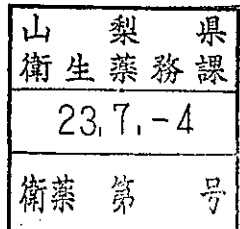 山梨県
衛生薬務課
23.7.-4
衛薬 第 号